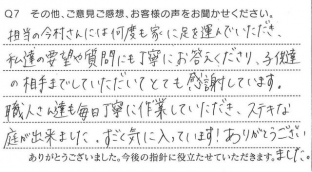 Q7 その他、ご意見ご感想、お客様の声をお聞かせください。
担当の今村さんには何度も家に足を運んでいただき、
私達の要望や質問にも丁寧にお答えくださり、子供達
の相手までしていただいてとても感謝しています。
職人さん達も毎日丁寧に作業していただき、ステキな
庭が出来ました。すごく気に入っています!ありがとうござい
ありがとうございました。今後の指針に役立たせていただきます。ました。